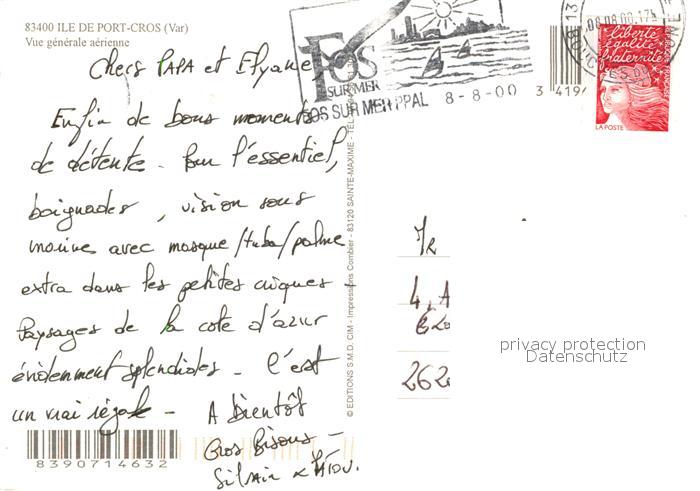 83400 ILE DE PORT-CROS (Var)
Vue générale aérienne
Chers PAPA et Elyane,
Enfin de bons moments
de détente. Pour l'essentiel,
baignades, vision sous
marine avec masque/tuba/palme
extra dans les petites criques -
Paysages de la cote d'azur
évidemment splendides - C'est
un vrai régale -
A bientôt
Gros Bisous -
8390714632
© EDITIONS S.M.D. CIM - Impressions Combier - 83120 SAINTE-MAXIME - TEL
FOS
SUR MER
FOS SUR MER PPAL 8-8-00
3 419
liberté
égalité
fraternité
LA POSTE
4, A
262
privacy protection
Datenschutz